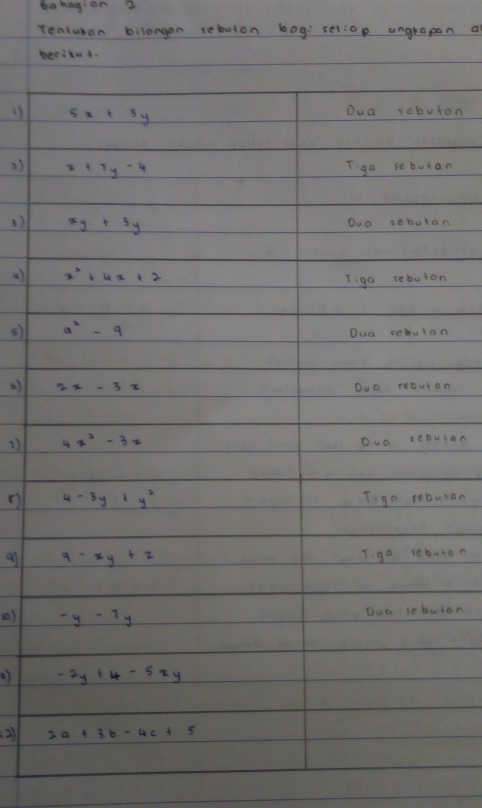 Bahagian 2
Tentukan bilangan sebutan bagi setiap ungkapan
berikut.
1) 5x + 3y Dua sebutan
2) x + 7y - 4 Tiga sebutan
3) xy + 3y Dua sebutan
4) x² + 4x + 2 Tiga sebutan
5) a² - 9 Dua sebutan
6) 2x - 3x Dua sebutan
7) 4x² - 3x Dua sebutan
8) 4 - 3y + y² Tiga sebutan
9) 9 - xy + 2 Tiga sebutan
10) -y - 7y Dua sebutan
-2y + 4 - 5xy
12) 2a + 3b - 4c + 5